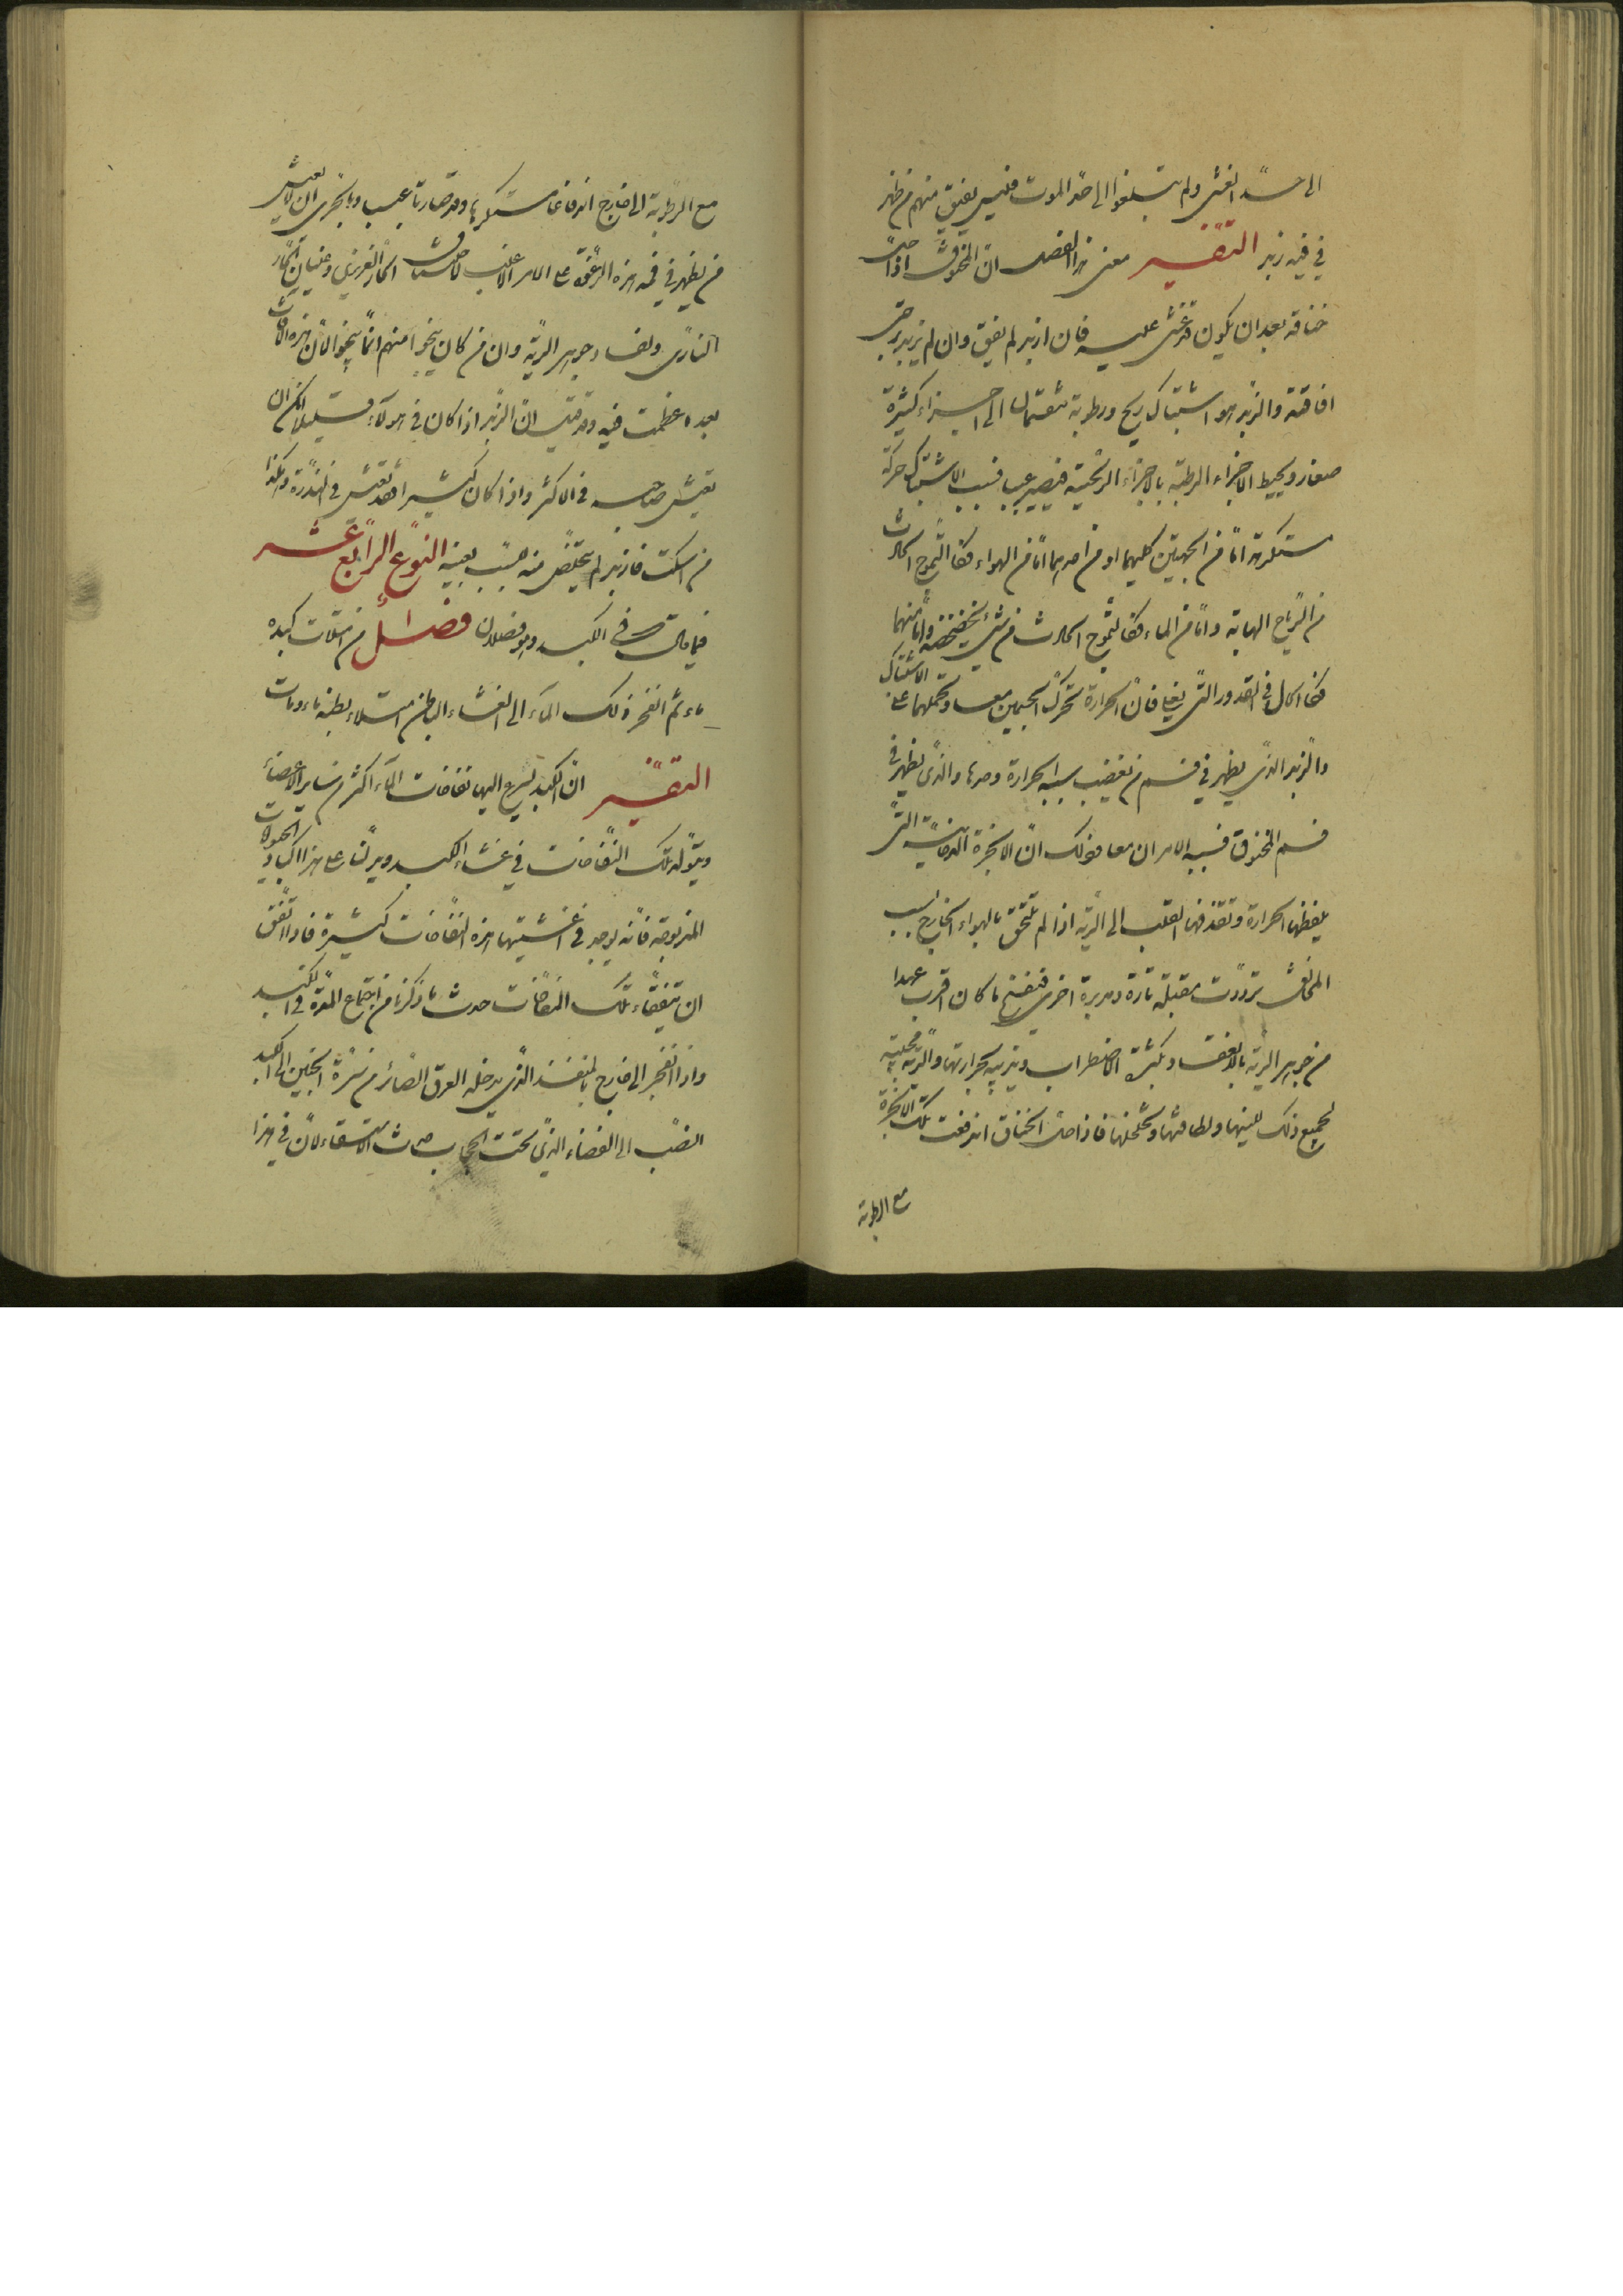 الى حدّ الغشى ولم يبلغوا الى حدّ الموت فليس يفيق منهم من ظهر
في فيه زبد التفسير معنى هذا الفصل ان المخنوق اذا حلّ
خناقه بعد ان يكون قد غشى عليه فان ازبد لم يفق وان لم يزبد رجى
افاقته والزبد هو اشتباك ريح ورطوبة ينقسمان الى اجزاء كثيرة
صغار ويحيط الاجزاء الرطبة بالاجزاء الريحية فيصير عبب فسبب الاشتباك حركة
مستكرهة امّا من الجهتين كليهما او من احدهما امّا من الهواء فكالتموج الحادث
من الرياح الهابة وامّا من الماء فكالتموج الحادث من شئ يخضخضه وامّا منهما
فكالحال في القدور التى يغلى فان الحرارة تحرك الجسمين معا وتحملهما على الاشتباك
والزبد الذى يظهر في فم من يغضب سببه الحرارة وحدها والذى يظهر في
فم المخنوق فسببه الامران معا وذلك انّ الابخرة الدخانية التى
يلفظها الحرارة وتقذفها القلب الى الرية اذا لم تلتحق بالهواء الخارج بسبب
المخانق تردّدت مقبلة تارة ومدبرة اخرى فتفسخ ما كان اقرب عهدا
من جوهر الرية بالانعقاد بكثرة الاضطراب ويذيبه بحرارتها والرية مجيبة
لجميع ذلك للينها ولطافتها وتخلخلها فاذا حلّ الخناق اندفعت تلك الابخرة
مع الرطوبة
مع الرطوبة الى خارج اندفاعا مستكرها وقد صارتا عبب وبالحرى ان لا يعيش
من يظهر في فمه هذه الرغوة على الامر الاغلب لاختناق الحار الغريزى وغليان الحار
النارى وفساد جوهر الرية وان من كان ينجوا منهم انما ينجوا لان هذه الآفات
بعد ما عظمت فيه وقد قيل انّ الزبد اذا كان في هولاء قليلا امكن ان
يعيش صاحبه في الاكثر واذا كان كثيرا فقد يعيش في الندرة وهكذا
من اسكت فازبد لم يتخلص منه لسبب بعينه النوع الرابع عشر
فيما قال في الكبد وهو فصلان فصل من امتلات كبده
ماء ثم انفجر ذلك الماء الى الغشاء الباطن امتلاء بطنه ماء ومات
التفسير ان الكبد يسرع اليها نفاخات الماء اكثر من ساير الاعضاء
ويتولد تلك النفاخات في غشاء الكبد ويدلّنا على هذا اكباد الحيوانات
المذبوحة فانه يوجد في اغشيتها هذه النفاخات كثيرة فاذا اتّفق
ان يتفقاء تلك النفاخات حدث ما ذكرنا من اجتماع المدة في الكبد
واذا انفجر الى خارج بالمنفذ الذى يدخله العرق الصائر من سرّة الجنين الى الكبد
انصبّ الى الفضاء الذى تحت الحجاب حدث الاستسقاء لانّ في هذا